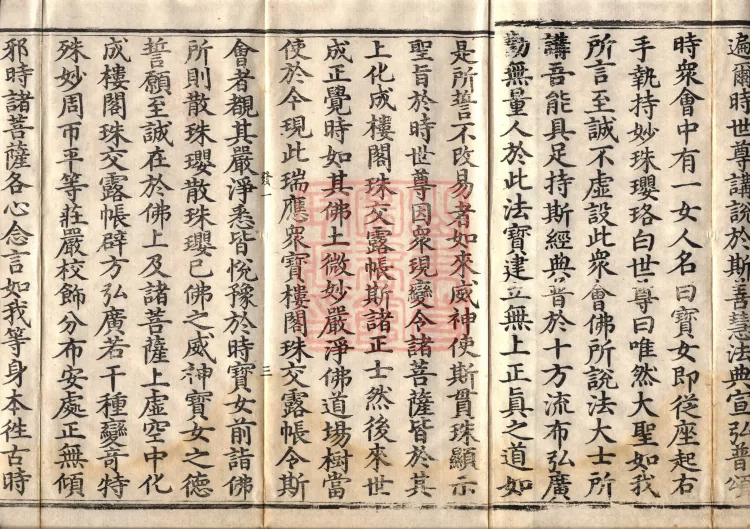 遍爾時世尊講說於斯善慧法典宣弘普頌
時衆會中有一女人名曰寶女即從座起右
手執持妙珠瓔珞白世尊曰唯然大聖如我
所言至誠不虛設此衆會佛所說法大士所
講吾能具足持斯經典普於十方流布弘廣
勸無量人於此法寶建立無上正眞之道如
是所誓不改易者如來威神使斯貫珠顯示
聖旨於時世尊因衆現變令諸菩薩皆於其
上化成樓閣珠交露帳斯諸正士然後來世
成正覺時如其佛土微妙嚴淨佛道場樹當
使於今現此瑞應衆寶樓閣珠交露帳令斯
發一 三
會者覩其嚴淨悉皆悅豫於時寶女前詣佛
所則散珠瓔散珠瓔已佛之威神寶女之德
誓願至誠在於佛上及諸菩薩上虛空中化
成樓閣珠交露帳辟方弘廣若干種變奇特
殊妙周帀平等莊嚴校飾分布安處正無傾
邪時諸菩薩各心念言如我等身本徃古時